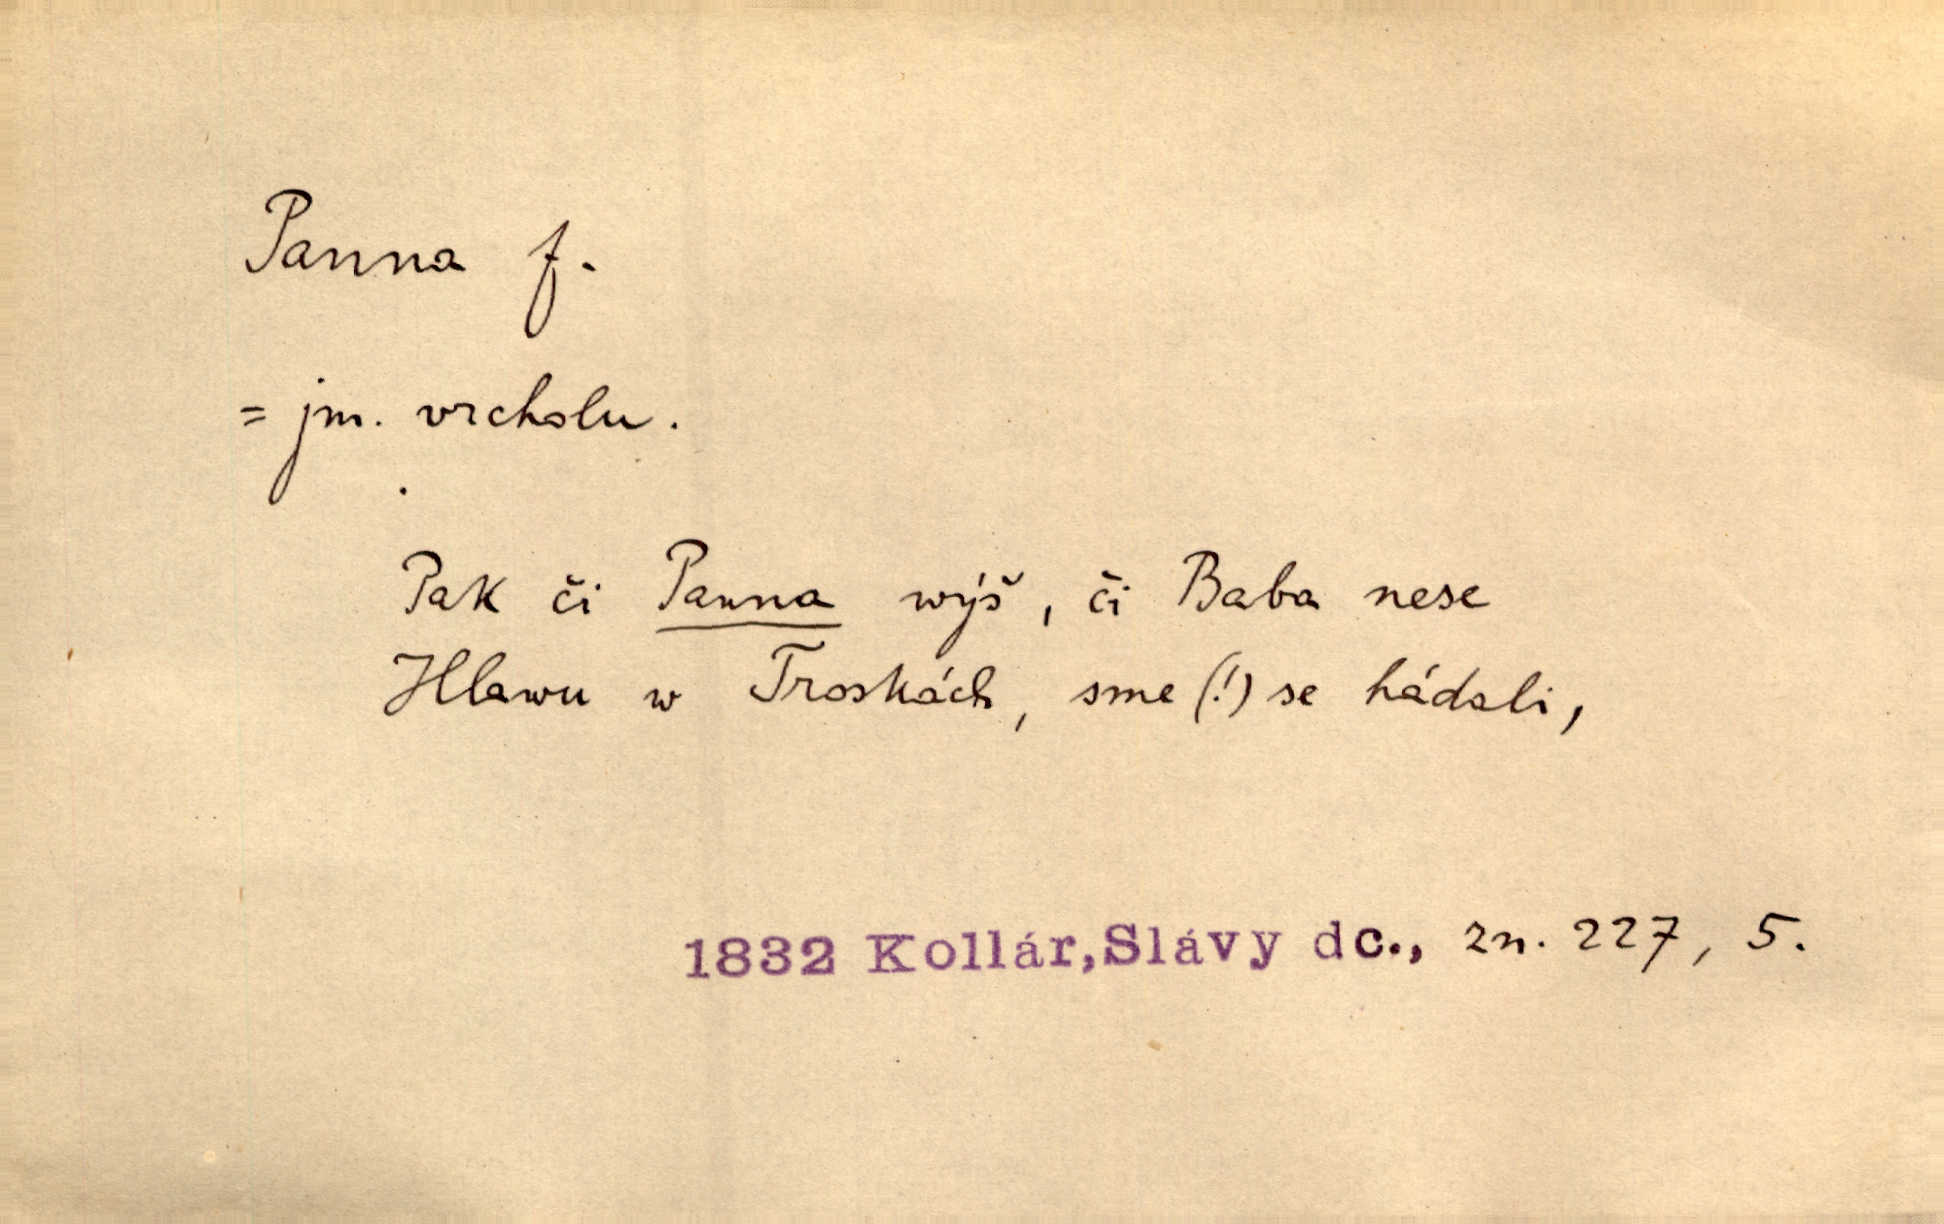 Panna f.
= jm. vrcholu.
Pak či Panna wýš, či Baba nese
Hlawu w Troskách, sme (!) se hádali,
1832 Kollár, Slávy dc., zn. 227, 5.